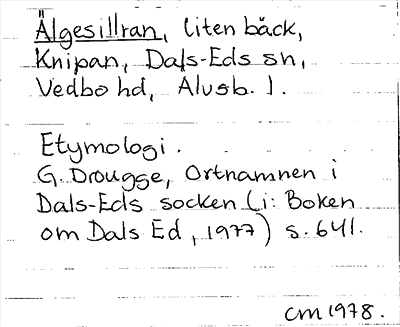 Älgesillran, liten bäck,
Knipan, Dals-Eds sn,
Vedbo hd, Älvsb. l.
Etymologi.
G. Drougge, Ortnamnen i
Dals-Eds socken (i: Boken
om Dals Ed, 1977) s. 641.
cm 1978.